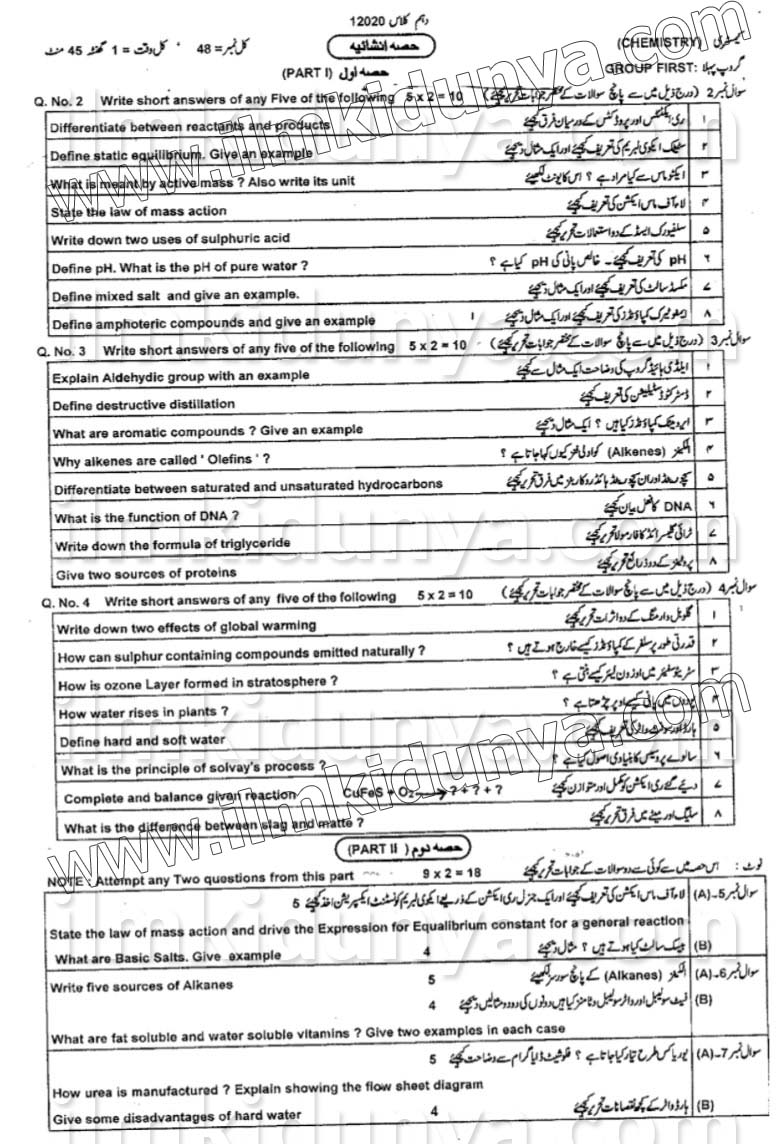 دہم کلاس 12020
کیمسٹری (CHEMISTRY) حصہ انشائیہ کل نمبر = 48 کل وقت = 1 گھنٹہ 45 منٹ
گروپ پہلا GROUP FIRST: حصہ اول (PART I)
Q. No. 2 Write short answers of any Five of the following 5 x 2 = 10 سوال نمبر 2 (درج ذیل میں سے پانچ سوالات کے مختصر جوابات تحریر کیجئے)
Differentiate between reactants and products ری ایکٹنٹس اور پروڈکٹس کے درمیان فرق کیجئے ۱
Define static equilibrium. Give an example سٹیٹک ایکوی لبریم کی تعریف کیجئے اور ایک مثال دیجئے ۲
What is meant by active mass ? Also write its unit ایکٹو ماس سے کیا مراد ہے ؟ اس کا یونٹ لکھیئے ۳
State the law of mass action لاء آف ماس ایکشن کی تعریف کیجئے ۴
Write down two uses of sulphuric acid سلفیورک ایسڈ کے دو استعمالات تحریر کیجئے ۵
Define pH. What is the pH of pure water ? pH کی تعریف کیجئے ۔ خالص پانی کی pH کیا ہے ؟ ۶
Define mixed salt and give an example. مکسڈ سالٹ کی تعریف کیجئے اور ایک مثال دیجئے ۷
Define amphoteric compounds and give an example ایمفوٹیرک کمپاؤنڈز کی تعریف کیجئے اور ایک مثال دیجئے ۸
Q. No. 3 Write short answers of any five of the following 5 x 2 = 10 سوال نمبر 3 (درج ذیل میں سے پانچ سوالات کے مختصر جوابات تحریر کیجئے)
Explain Aldehydic group with an example ایلڈی ہائیڈ گروپ کی وضاحت ایک مثال سے کیجئے ۱
Define destructive distillation ڈسٹرکٹو ڈسٹیلیشن کی تعریف کیجئے ۲
What are aromatic compounds ? Give an example ایرومیٹک کمپاؤنڈز کیا ہیں ؟ ایک مثال دیجئے ۳
Why alkenes are called ' Olefins ' ? الکینز (Alkenes) کو اولی فنز کیوں کہا جاتا ہے ؟ ۴
Differentiate between saturated and unsaturated hydrocarbons سیچوریٹڈ اور ان سیچوریٹڈ ہائڈروکاربنز میں فرق تحریر کیجئے ۵
What is the function of DNA ? DNA کا فعل بیان کیجئے ۶
Write down the formula of triglyceride ٹرائی گلیسرائڈ کا فارمولا تحریر کیجئے ۷
Give two sources of proteins پروٹینز کے دو ذرائع تحریر کیجئے ۸
Q. No. 4 Write short answers of any five of the following 5 x 2 = 10 سوال نمبر 4 (درج ذیل میں سے پانچ سوالات کے مختصر جوابات تحریر کیجئے)
Write down two effects of global warming گلوبل وارمنگ کے دو اثرات تحریر کیجئے ۱
How can sulphur containing compounds emitted naturally ? قدرتی طور پر سلفر کے کمپاؤنڈز کیسے خارج ہوتے ہیں ؟ ۲
How is ozone Layer formed in stratosphere ? سٹریٹوسفیئر میں اوزون لیئر کیسے بنتی ہے ؟ ۳
How water rises in plants ? پودوں میں پانی کیسے اوپر چڑھتا ہے ؟ ۴
Define hard and soft water ہارڈ اور سوفٹ واٹر کی تعریف کیجئے ۵
What is the principle of solvay's process ? سالوے پروسیس کا بنیادی اصول کیا ہے ؟ ۶
Complete and balance given reaction CuFeS + O₂ ⟶ ? + ? + ? دیئے گئے ری ایکشن کو مکمل اور متوازن کیجئے ۷
What is the difference between slag and matte ? سلیگ اور میٹے میں فرق تحریر کیجئے ۸
حصہ دوم (PART II)
NOTE : Attempt any Two questions from this part 9 x 2 = 18 نوٹ : اس حصہ میں سے کوئی سے دو سوالات کے جوابات تحریر کیجئے
سوال نمبر 5-(A) لاء آف ماس ایکشن کی تعریف کیجئے اور ایک جنرل ری ایکشن کے ذریعے ایکوی لبریم کونسٹنٹ ایکسپریشن اخذ کیجئے 5
State the law of mass action and drive the Expression for Equalibrium constant for a general reaction
What are Basic Salts. Give example 4 بیسک سالٹ کیا ہوتے ہیں ؟ مثال دیجئے (B)
Write five sources of Alkanes 5 الکینز (Alkanes) کے پانچ سورسز لکھیئے سوال نمبر 6-(A)
4 فیٹ سولیبل اور واٹر سولیبل وٹامنز کیا ہیں دونوں کی دو دو مثالیں دیجئے (B)
What are fat soluble and water soluble vitamins ? Give two examples in each case
سوال نمبر 7-(A) یوریا کس طرح تیار کیا جاتا ہے ؟ فلوشیٹ ڈایا گرام سے وضاحت کیجئے 5
How urea is manufactured ? Explain showing the flow sheet diagram
Give some disadvantages of hard water 4 ہارڈ واٹر کے کچھ نقصانات تحریر کیجئے (B)
www.ilmkidunya.com
ilmkidunya.com
www.ilmkidunya.com
ilmkidunya.com
www.ilmkidunya.com
ilmkidunya.com